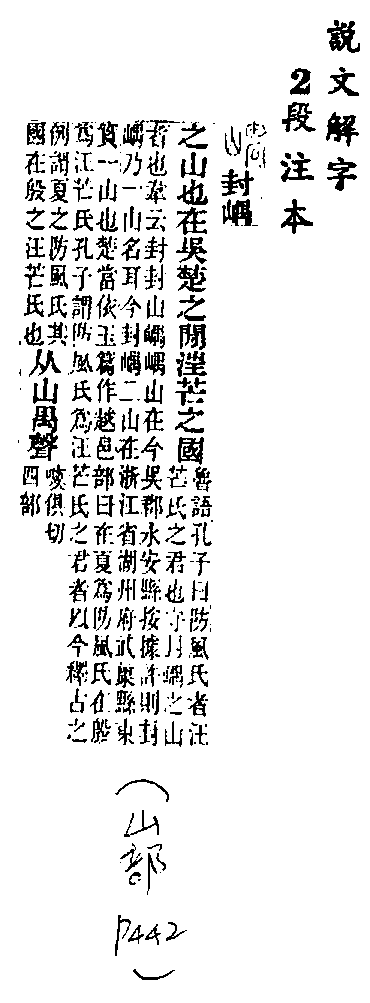 說文解字
2段注本
封嵎
之山也在吳楚之閒汪芒之國
魯語孔子曰防風氏者汪
芒氏之君也守封嵎之山
者也韋云封封山嵎嵎山在今吳郡永安縣按據許則封
嵎乃一山名耳今封嵎二山在浙江省湖州府武康縣東
實一山也楚當依玉篇作越邑部曰在夏爲防風氏在殷
爲汪芒氏孔子謂防風氏爲汪芒氏之君者以今釋古之
例謂夏之防風氏其
國在殷之汪芒氏也
从山禺聲
噳俱切
四部
(山部
P442)